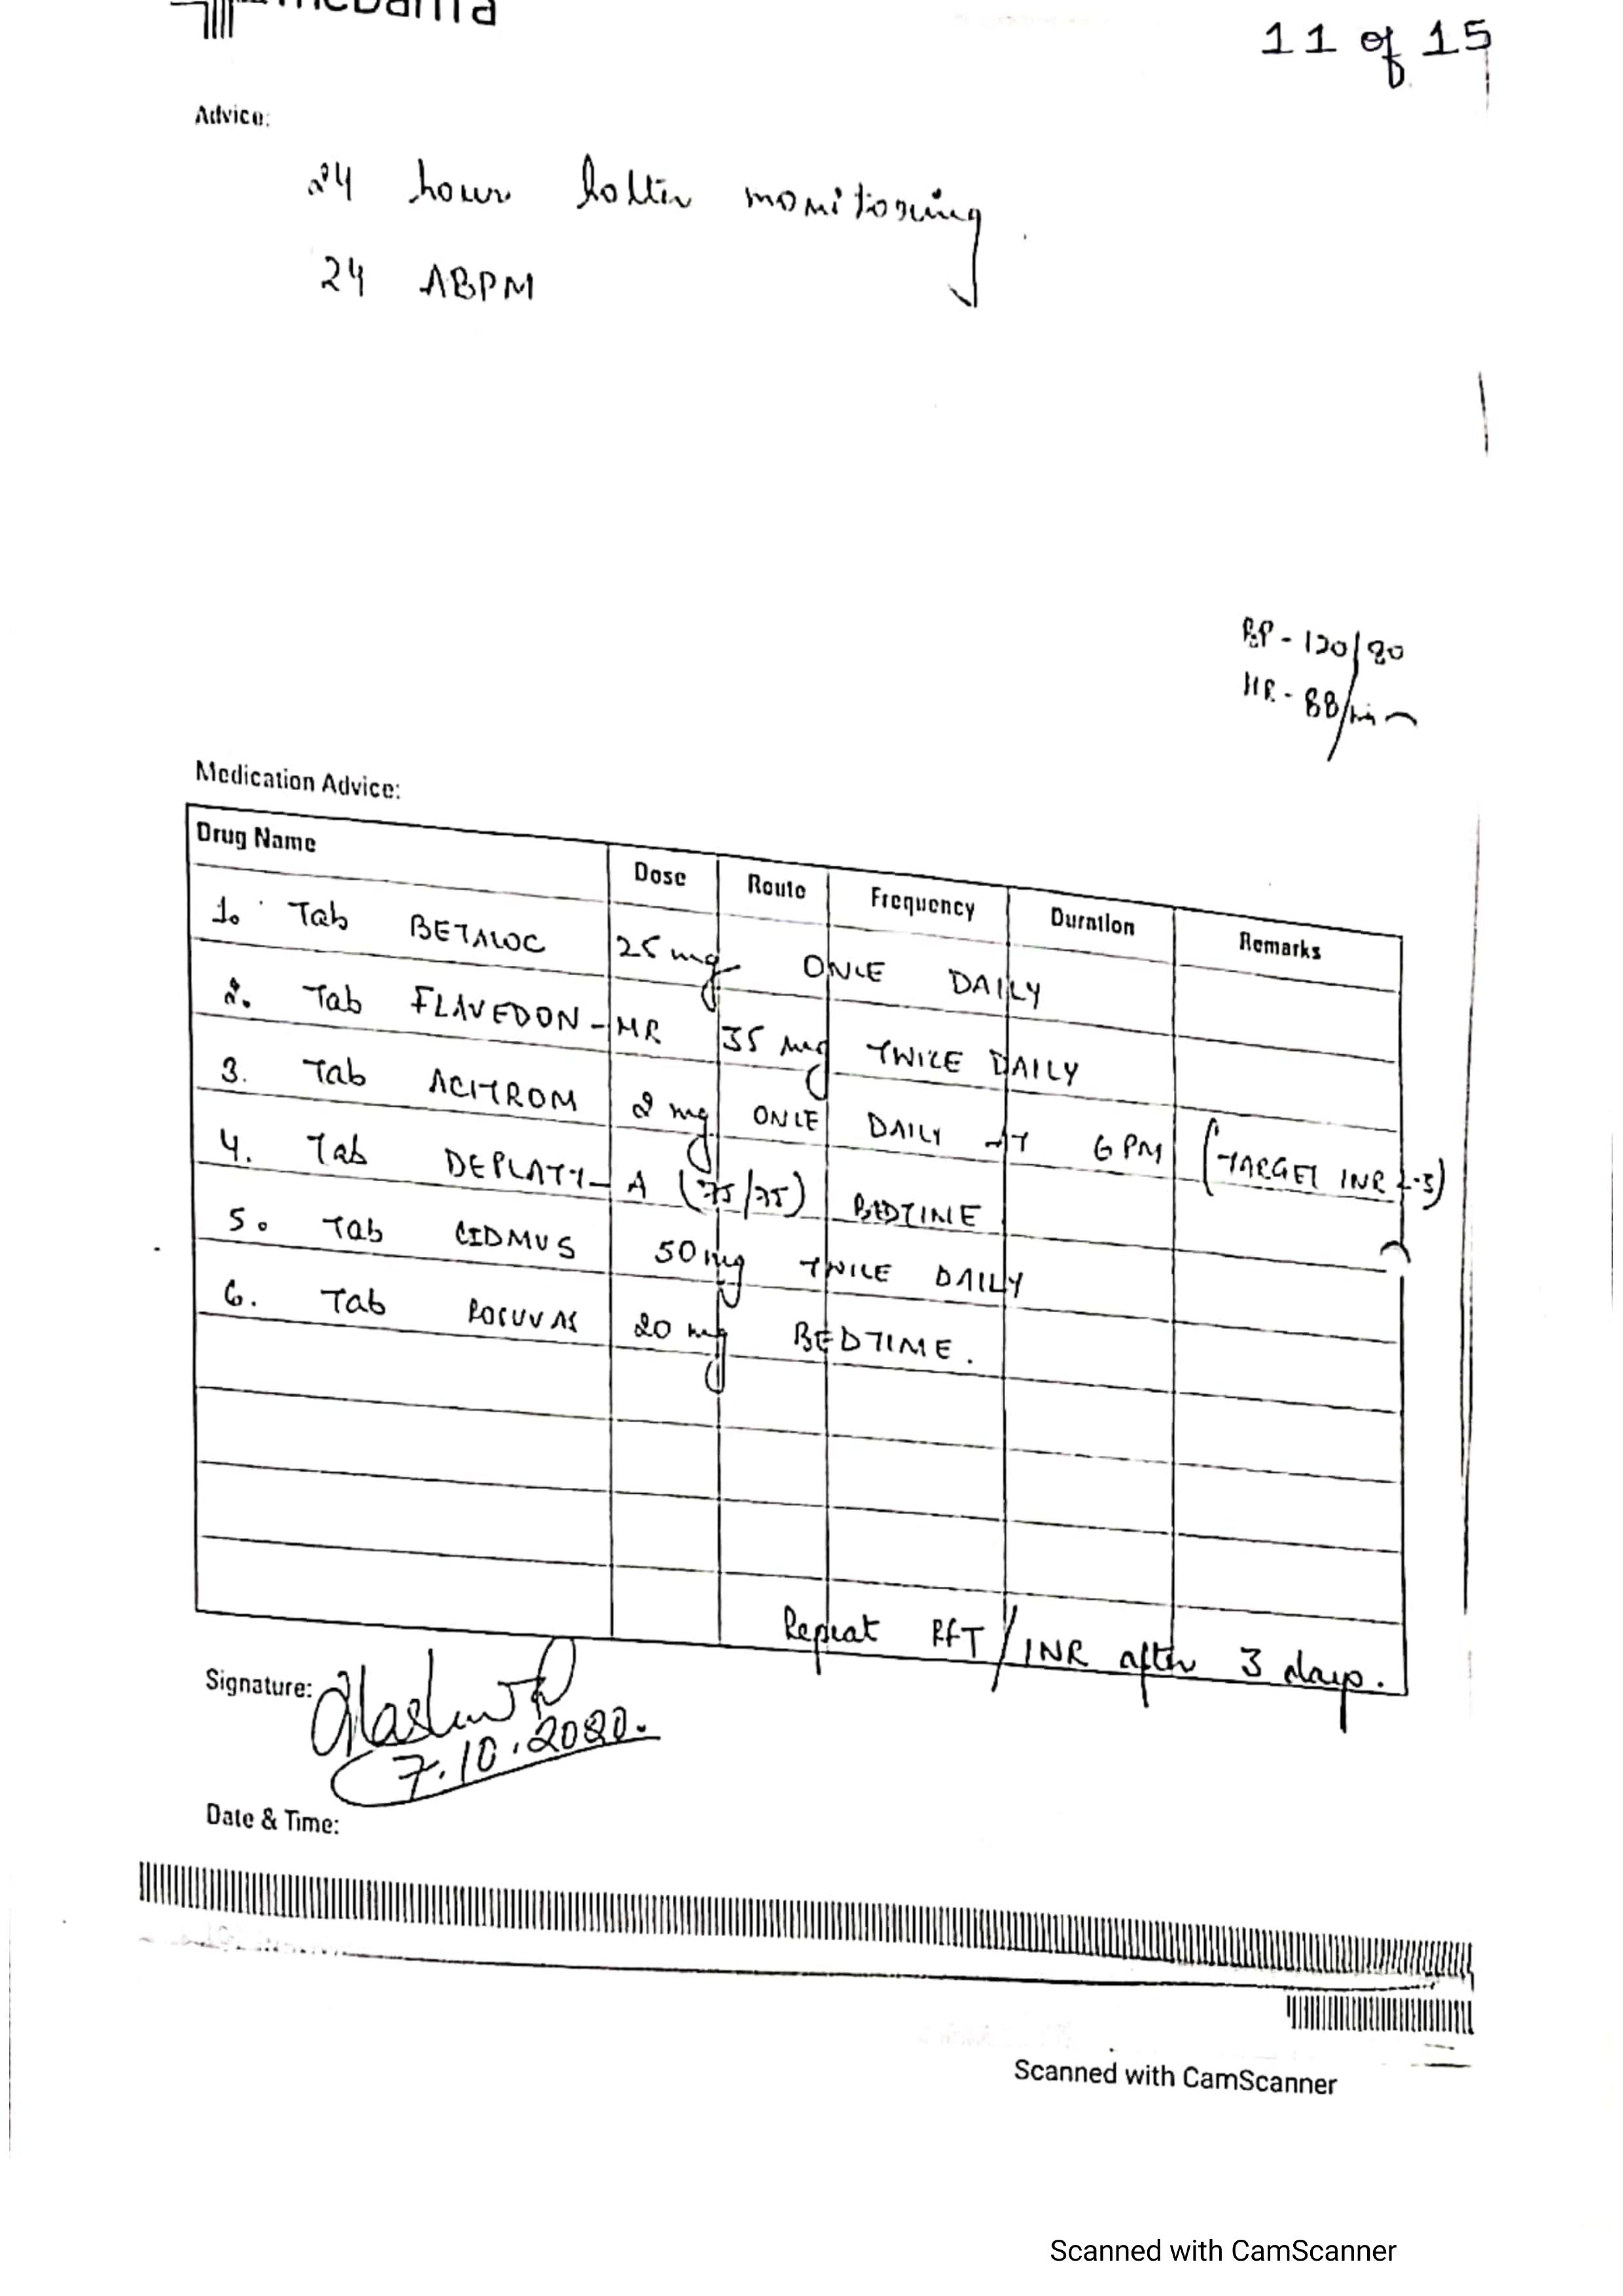 medanta
11 of 15
Advice:
24 hour holter monitoring
24 ABPM
BP - 120/80
HR - 88/min
Medication Advice:
Drug Name Dose Route Frequency Duration Remarks
1. Tab BETALOC 25 mg ONCE DAILY
2. Tab FLAVEDON-MR 35 mg TWICE DAILY
3. Tab ACITROM 2 mg ONCE DAILY AT 6 PM (TARGET INR 2-3)
4. Tab DEPLATT-A (75/75) BEDTIME
5. Tab CIDMUS 50 mg TWICE DAILY
6. Tab ROSUVAS 20 mg BEDTIME.
Repeat RFT/INR after 3 days.
Signature:
7.10.2020.
Date & Time:
Scanned with CamScanner
Scanned with CamScanner